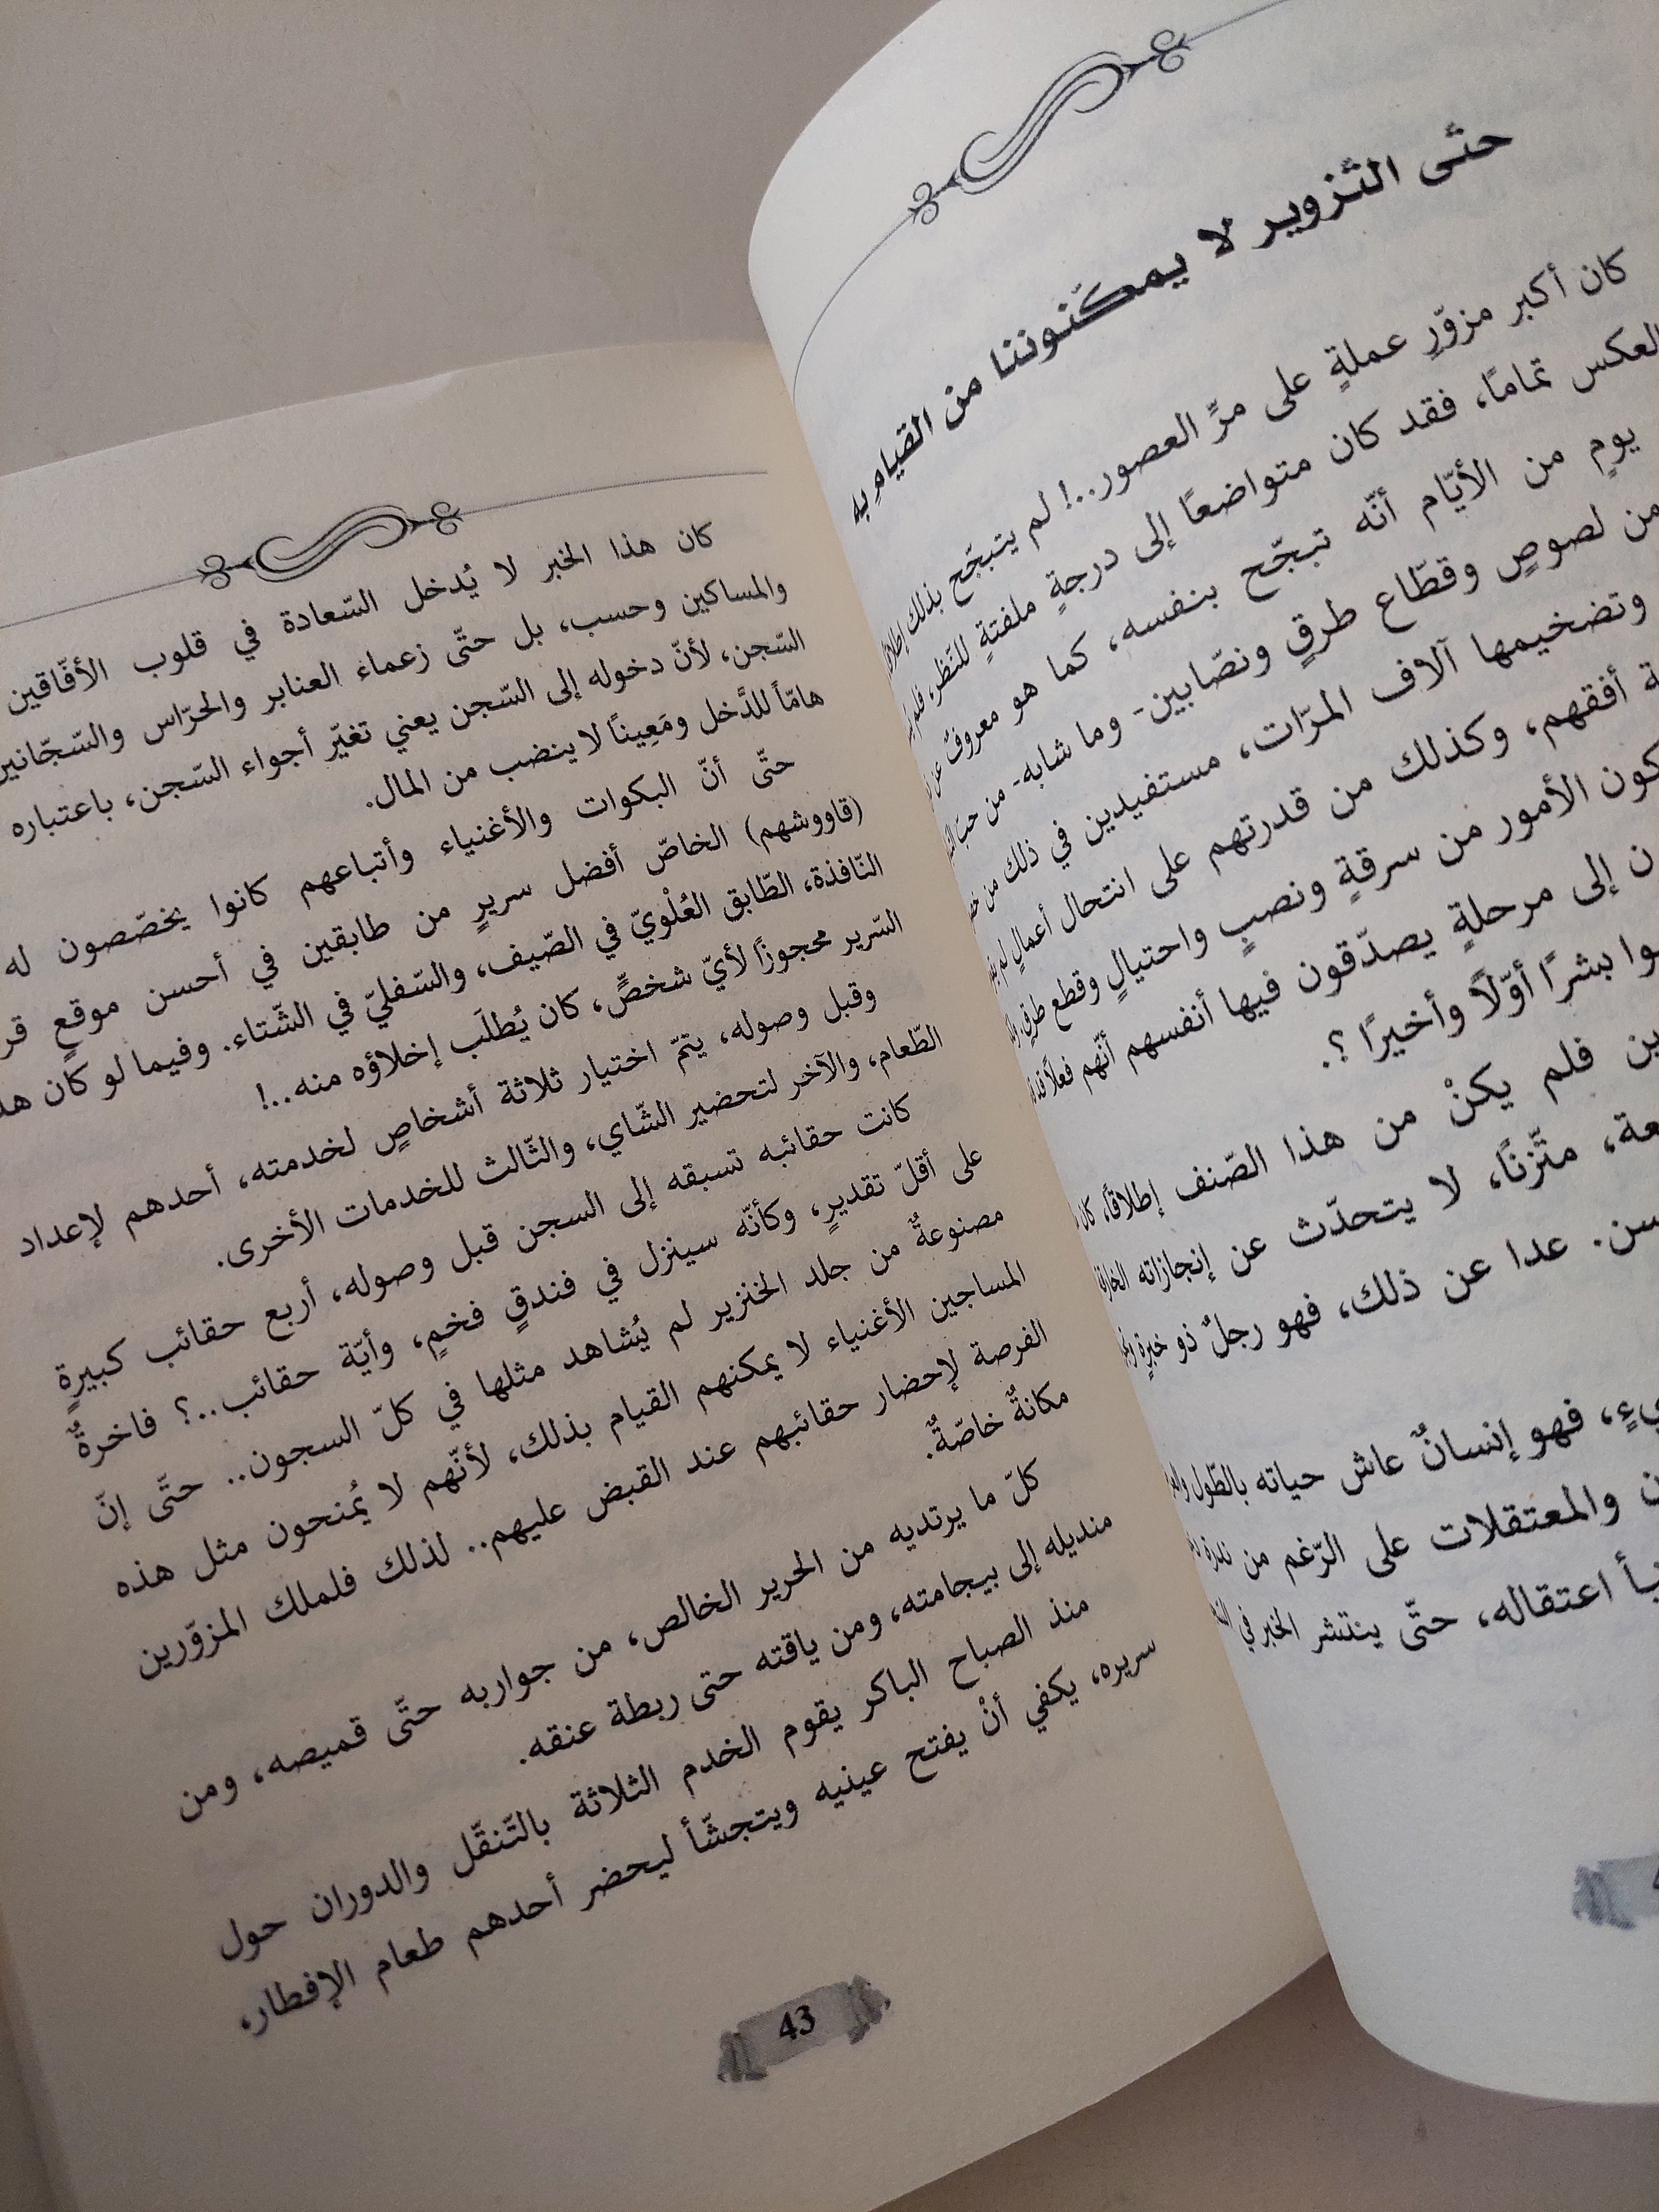 حتّى التّزوير لا يمكّنوننا من القيام به
كان أكبر مزوّرٍ عملةٍ على مرِّ العصور..! لم يتبجّح بذلك إطلاقًا
العكس تمامًا، فقد كان متواضعًا إلى درجةٍ ملفتةٍ للنّظر، فلم
يومٍ من الأيّام أنّه تبجّح بنفسه، كما هو معروفٌ عن
من لصوصٍ وقطّاع طرقٍ ونصّابين- وما شابه- من حبّ
وتضخيمها آلاف المرّات، مستفيدين في ذلك من
أفقهم، وكذلك من قدرتهم على انتحال أعمالٍ لم
كون الأمور من سرقةٍ ونصبٍ واحتيالٍ وقطع طرقٍ
ن إلى مرحلةٍ يصدّقون فيها أنفسهم أنّهم فعلاً
وا بشرًا أوّلًا وأخيرًا ؟.
ين فلم يكنْ من هذا الصّنف إطلاقًا، كان
عة، متّزنًا، لا يتحدّث عن إنجازاته
سن. عدا عن ذلك، فهو رجلٌ ذو خبرةٍ
يءٍ، فهو إنسانٌ عاش حياته بالطّول
ن والمعتقلات على الرّغم من ندرة
بأ اعتقاله، حتّى ينتشر الخبر في
كان هذا الخبر لا يُدخل السّعادة في قلوب الأفّاقين
والمساكين وحسب، بل حتّى زعماء العنابر والحرّاس والسّجّانين
السّجن، لأنّ دخوله إلى السّجن يعني تغيّر أجواء السّجن، باعتباره
هامّاً للدَّخل ومَعِيناً لا ينضب من المال.
حتّى أنّ البكوات والأغنياء وأتباعهم كانوا يخصّصون له
(قاووشهم) الخاصّ أفضل سريرٍ من طابقين في أحسن موقعٍ
النّافذة، الطّابق العُلْويّ في الصّيف، والسّفليّ في الشّتاء. وفيما لو كان
السّرير محجوزًا لأيّ شخصٍّ، كان يُطلَب إخلاؤه منه..!
وقبل وصوله، يتمّ اختيار ثلاثة أشخاصٍ لخدمته، أحدهم لإعداد
الطّعام، والآخر لتحضير الشّاي، والثّالث للخدمات الأخرى.
كانت حقائبه تسبقه إلى السجن قبل وصوله، أربع حقائب كبيرةٍ
على أقلّ تقديرٍ، وكأنّه سينزل في فندقٍ فخمٍ، وأيّة حقائب..؟ فاخرةٌ
مصنوعةٌ من جلد الخنزير لم يُشاهد مثلها في كلّ السجون.. حتّى إنّ
المساجين الأغنياء لا يمكنهم القيام بذلك، لأنّهم لا يُمنحون مثل هذه
الفرصة لإحضار حقائبهم عند القبض عليهم.. لذلك فلملك المزوّرين
مكانةٌ خاصّةٌ.
كلّ ما يرتديه من الحرير الخالص، من جواربه حتّى قميصه، ومن
منديله إلى بيجامته، ومن ياقته حتى ربطة عنقه.
منذ الصباح الباكر يقوم الخدم الثلاثة بالتّنقّل والدوران حول
سريره، يكفي أنْ يفتح عينيه ويتجشّأ ليحضر أحدهم طعام الإفطار،
43